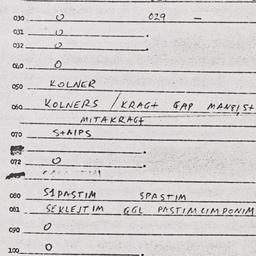 030 0 029 -
031 0
032 0
040 0
050 KOLNER
060 KOLNERS / KRAGT GAP MANS,S+
MITAKRAGT
070 S+AIPS
072 0
080 S1PASTIM SPASTIM
081 SEKLEJTIM GGL PASTIMCIMPONIM
090 0
100 0